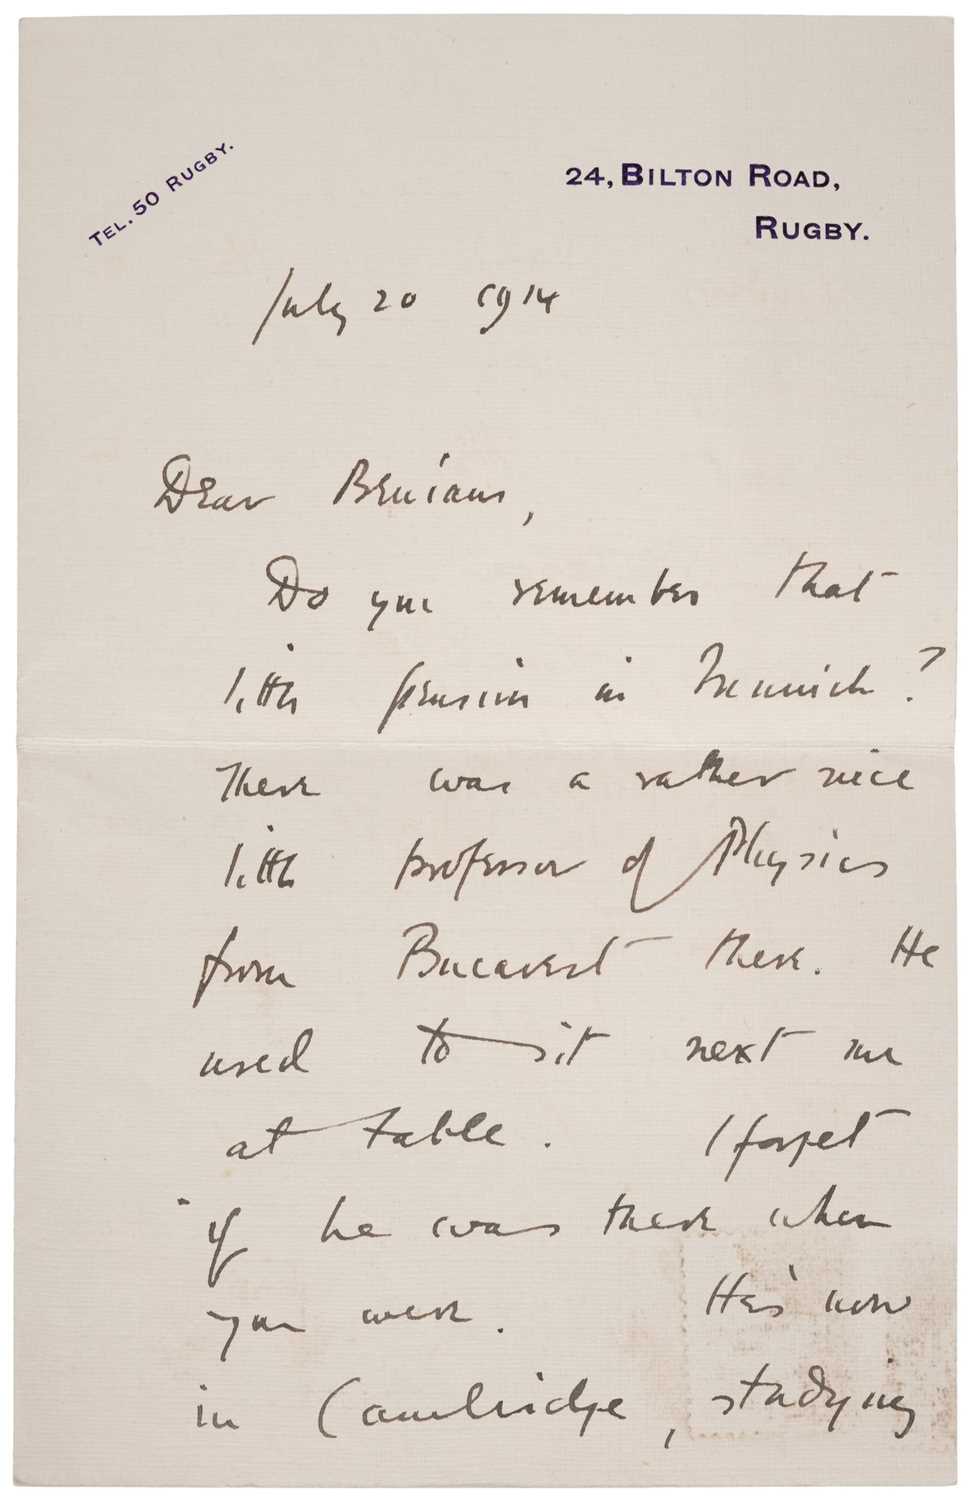 TEL. 50 RUGBY.
24, BILTON ROAD,
RUGBY.
July 20 1914
Dear Benians,
Do you remember that
little pension in Munich?
There was a rather nice
little professor of Physics
from Bucarest there. He
used to sit next me
at table. I forget
if he was there when
you were. He's now
in Cambridge, studying